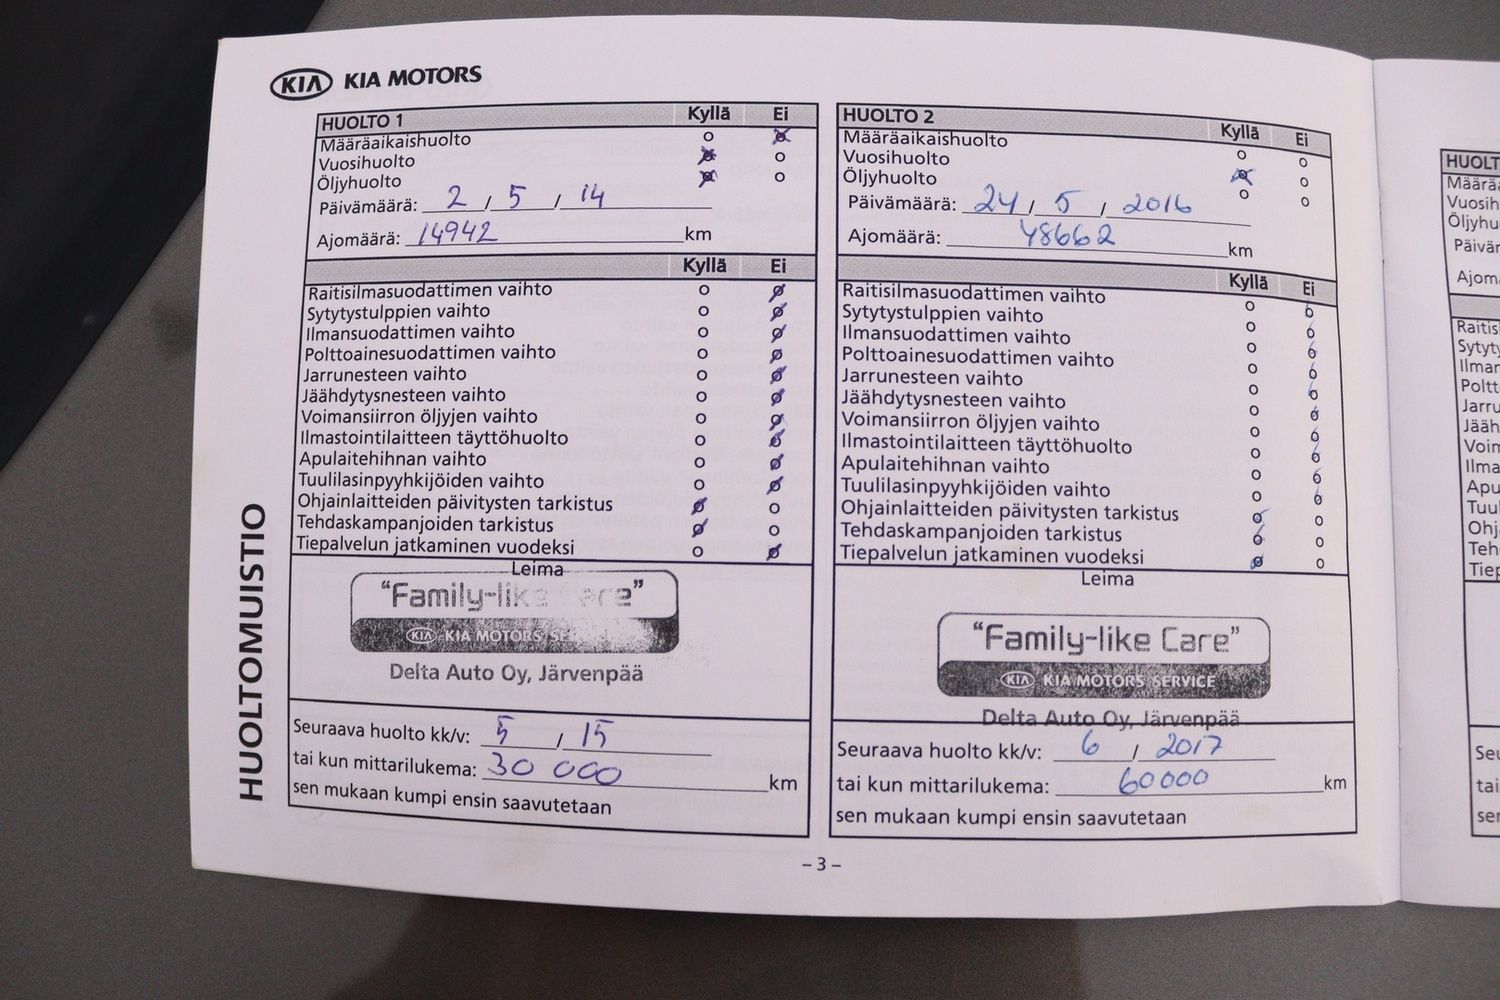 KIA KIA MOTORS
HUOLTOMUISTIO
HUOLTO 1 Kyllä Ei
Määräaikaishuolto
Vuosihuolto
Öljyhuolto
Päivämäärä: 2 / 5 / 14
Ajomäärä: 14942 km
Kyllä Ei
Raitisilmasuodattimen vaihto
Sytytystulppien vaihto
Ilmansuodattimen vaihto
Polttoainesuodattimen vaihto
Jarrunesteen vaihto
Jäähdytysnesteen vaihto
Voimansiirron öljyjen vaihto
Ilmastointilaitteen täyttöhuolto
Apulaitehihnan vaihto
Tuulilasinpyyhkijöiden vaihto
Ohjainlaitteiden päivitysten tarkistus
Tehdaskampanjoiden tarkistus
Tiepalvelun jatkaminen vuodeksi
Leima
"Family-like Care"
KIA KIA MOTORS
Delta Auto Oy, Järvenpää
Seuraava huolto kk/v: 5 / 15
tai kun mittarilukema: 30 000 km
sen mukaan kumpi ensin saavutetaan
HUOLTO 2 Kyllä Ei
Määräaikaishuolto
Vuosihuolto
Öljyhuolto
Päivämäärä: 24 / 5 / 2016
Ajomäärä: 48662 km
Kyllä Ei
Raitisilmasuodattimen vaihto
Sytytystulppien vaihto
Ilmansuodattimen vaihto
Polttoainesuodattimen vaihto
Jarrunesteen vaihto
Jäähdytysnesteen vaihto
Voimansiirron öljyjen vaihto
Ilmastointilaitteen täyttöhuolto
Apulaitehihnan vaihto
Tuulilasinpyyhkijöiden vaihto
Ohjainlaitteiden päivitysten tarkistus
Tehdaskampanjoiden tarkistus
Tiepalvelun jatkaminen vuodeksi
Leima
"Family-like Care"
KIA KIA MOTORS SERVICE
Delta Auto Oy, Järvenpää
Seuraava huolto kk/v: 6 / 2017
tai kun mittarilukema: 60000 km
sen mukaan kumpi ensin saavutetaan
– 3 –